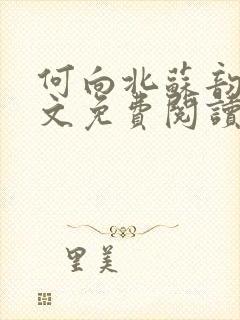 何向北蘇韵
文免費閱讀
里美